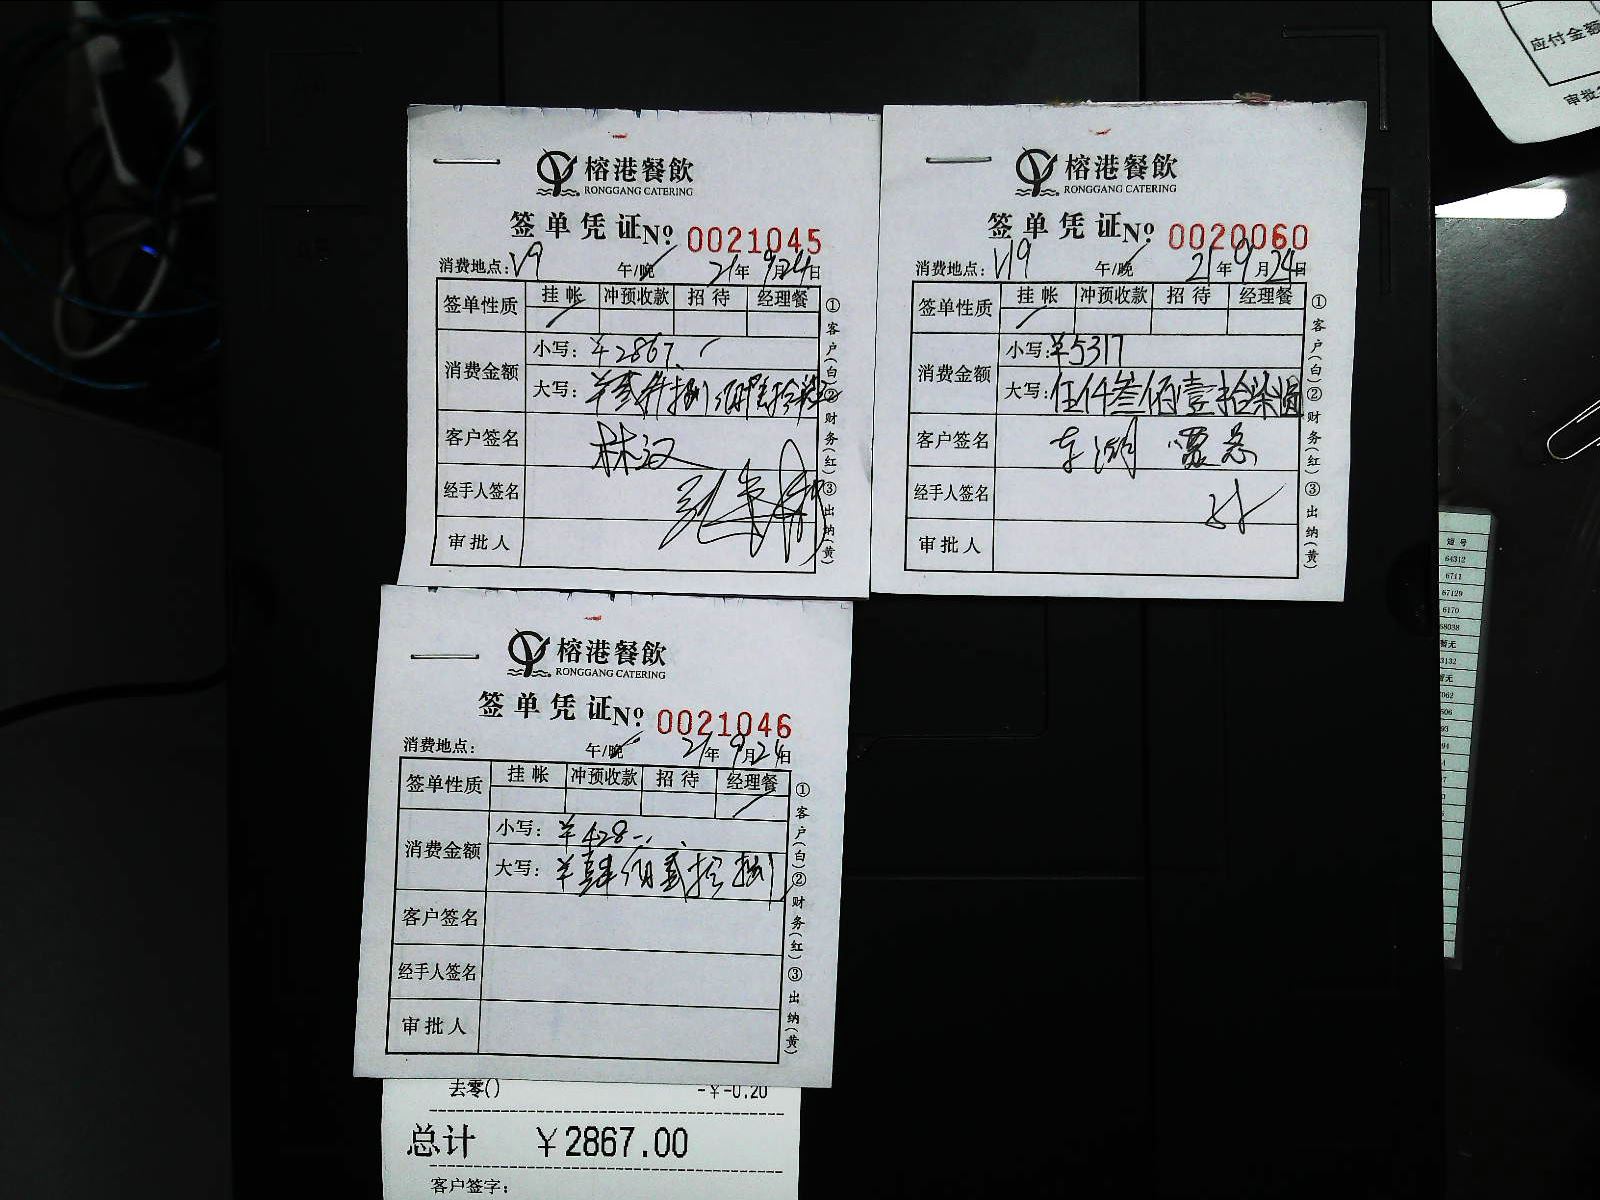 榕港餐飲
RONGGANG CATERING
签单凭证 No. 0021045
消费地点: V9 午/晚 21年9月24日
签单性质 挂帐 冲预收款 招待 经理餐
消费金额 小写: ¥2867.
大写:
客户签名 林汉
经手人签名
审批人
①客户(白)②财务(红)③出纳(黄)
榕港餐飲
RONGGANG CATERING
签单凭证 No. 0020060
消费地点: V19 午/晚 21年9月24日
签单性质 挂帐 冲预收款 招待 经理餐
消费金额 小写: ¥5317
大写: 伍仟叁佰壹拾柒圆
客户签名 东湖
经手人签名
审批人
①客户(白)②财务(红)③出纳(黄)
榕港餐飲
RONGGANG CATERING
签单凭证 No. 0021046
消费地点: 午/晚 21年9月24日
签单性质 挂帐 冲预收款 招待 经理餐
消费金额 小写: ¥428
大写: ¥肆佰贰拾捌
客户签名
经手人签名
审批人
①客户(白)②财务(红)③出纳(黄)
去零() -¥-0.20
总计 ¥2867.00
客户签字:
应付金额
审批
短号
64312
6711
67129
6170
68038
暂无